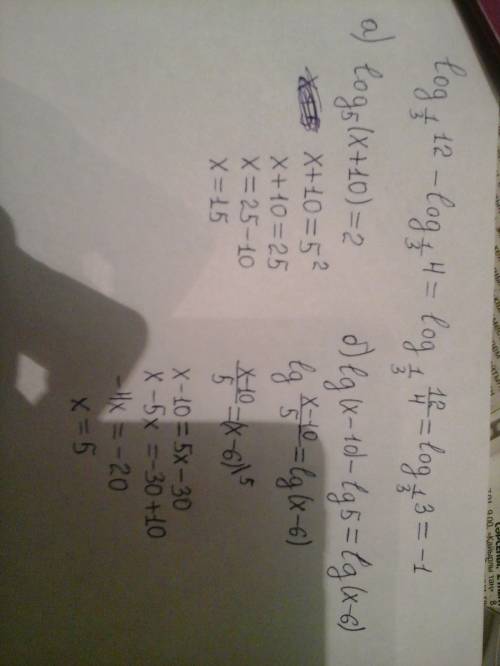 log_{1/3} 12 - log_{1/3} 4 = log_{1/3} 12/4 = log_{1/3} 3 = -1
а) log₅(x+10) = 2
x+10 = 5²
x+10 = 25
x = 25-10
x = 15
б) lg(x-10) - lg5 = lg(x-6)
lg (x-10)/5 = lg(x-6)
(x-10)/5 = (x-6) \5
x-10 = 5x-30
x-5x = -30+10
-4x = -20
x = 5